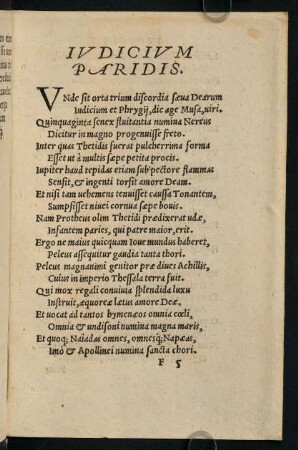 IVDICIVM
PARIDIS.
VNde sit orta trium discordia sæua Dearum
Iudicium et Phrygij, dic age Musa, uiri.
Quinquaginta senex fluitantia numina Nereus
Dicitur in magno progenuisse freto.
Inter quas Thetidis fuerat pulcherrima forma
Esset ut à multis sæpe petita procis.
Iupiter haud tepidas etiam sub pectore flammas
Sensit, & ingenti torsit amore Deam.
Et nisi tam uehemens tenuisset caussa Tonantem,
Sumpsisset niuei cornua sæpe bouis.
Nam Protheus olim Thetidi prædixerat udæ,
Infantem paries, qui patre maior, erit.
Ergo ne maius quicquam Ioue mundus haberet,
Peleus assequitur gaudia tanta thori.
Peleus magnanimi genitor præ diues Achillis,
Cuius in imperio Thessala terra fuit.
Qui mox regali conuiuia splendida luxu
Instruit, æquoreæ lætus amore Deæ,
Et uocat ad tantos hymenæos omnia cœli,
Omnia & undisoni numina magna maris,
Et quoq; Naiadas omnes, omnesq; Napæas,
Imò & Apollinei numina sancta chori.
F 5